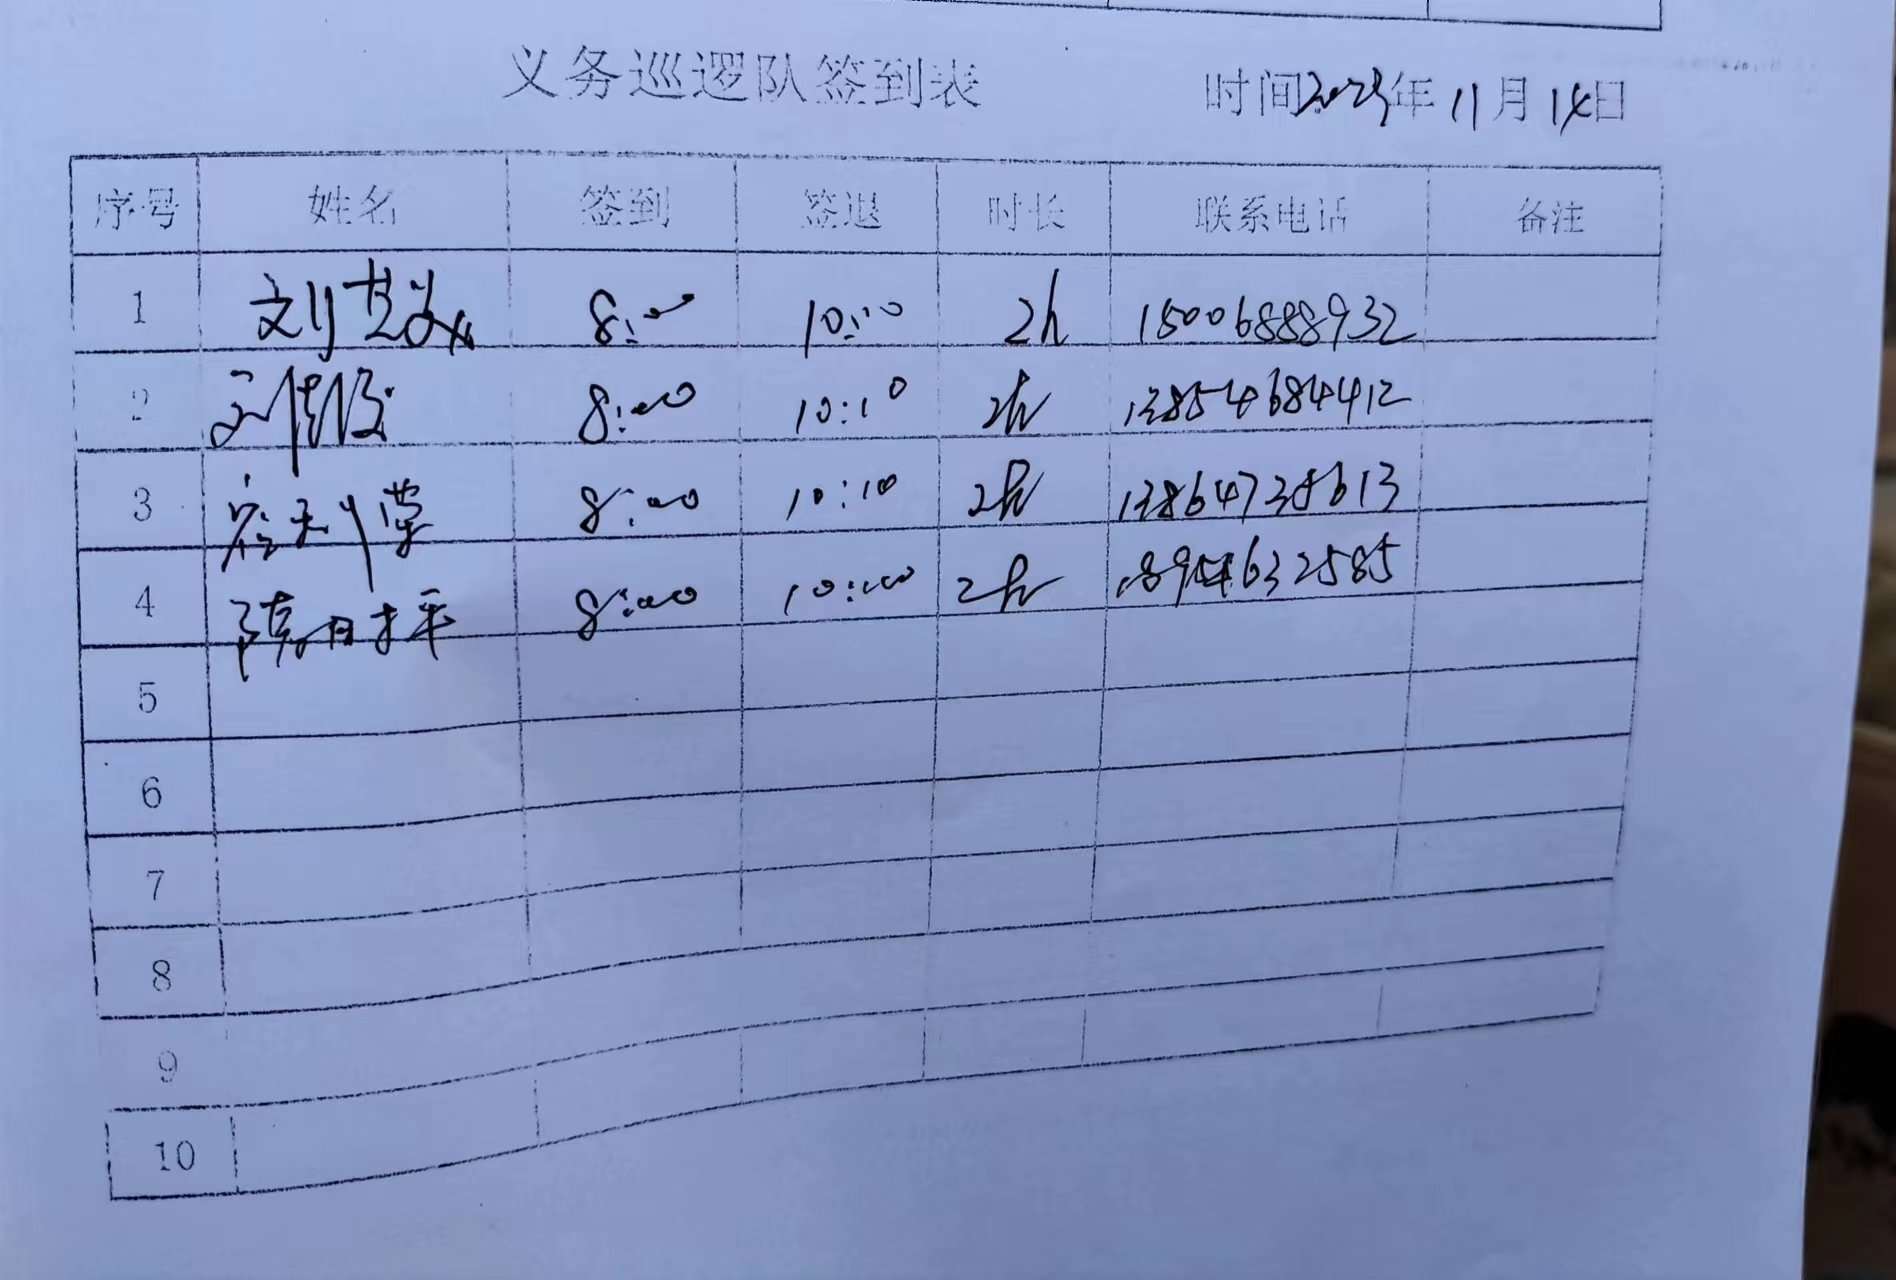 义务巡逻队签到表 时间2025年11月14日
序号 姓名 签到 签退 时长 联系电话 备注
1 8:00 10:00 2h 15006888932
2 8:00 10:10 2h 13854684412
3 8:00 10:10 2h 13864738613
4 陈梅平 8:00 10:00 2h 18954632585
5
6
7
8
9
10